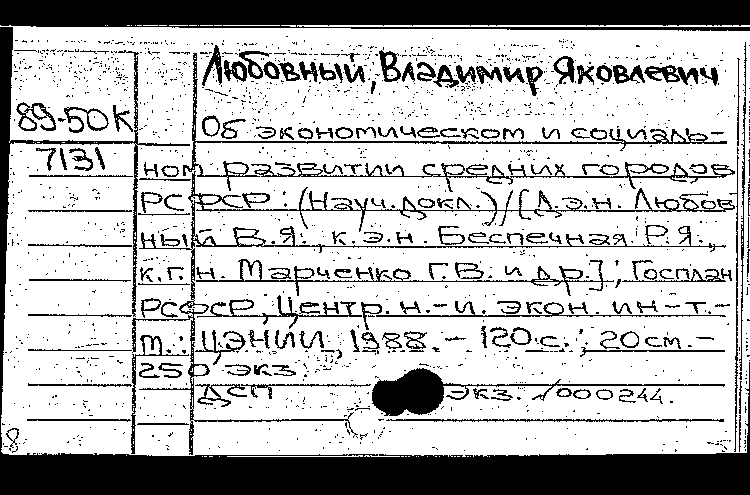 Любовный, Владимир Яковлевич
89-50к
7131
Об экономическом и социаль-
ном развитии средних городов
РСФСР: (Науч. докл.) / [Д.э.н. Любов
ный В.Я., к.э.н. Беспечная Р.Я.,
к.г.н. Марченко Г.В. и др.]; Госплан
РСФСР, Центр. н.-и. экон. ин-т.-
м.: ЦЭНИИ, 1988. - 120 с.; 20 см. -
250 экз
ДСП экз. №000244.
8